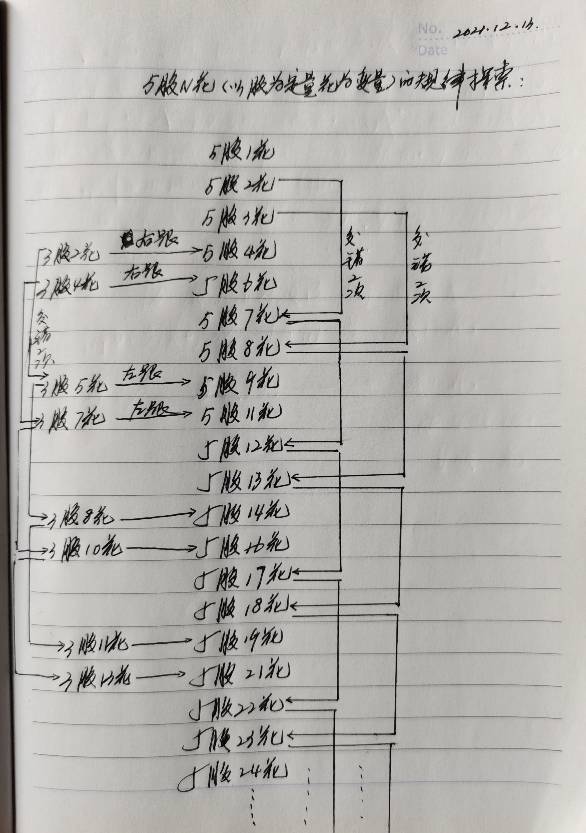 No.
2021.12.13.
Date
5股N花(以股为定量花为变量)的规律探索:
5股1花
5股2花
5股3花
3股2花 右跟 5股4花
3股4花 右跟 5股6花
5股7花
5股8花
3股5花 左跟 5股9花
3股7花 左跟 5股11花
5股12花
5股13花
3股8花 5股14花
3股10花 5股16花
5股17花
5股18花
3股11花 5股19花
3股13花 5股21花
5股22花
5股23花
5股24花